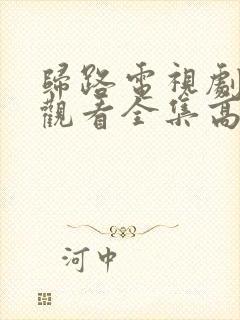 歸路電視劇
觀看全集高
河中